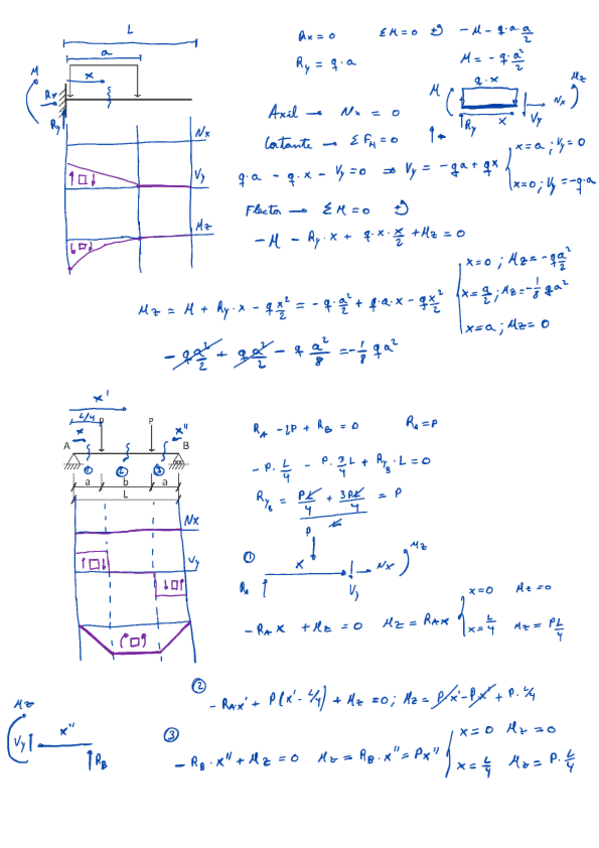 L
a
x
M
Rx
Ry
Rx = 0 ΣM=0 -M - q·a·a/2
Ry = q·a M = -q·a²/2
q·x
M Mz
Nx
Ry x Vy
Axil → Nx = 0
Cortante → ΣFH = 0
q·a - q·x - Vy = 0 ⇒ Vy = -qa + qx
x=a ; Vy=0
x=0 ; Vy=-q·a
Flector → ΣM=0
-M - Ry·x + q·x·x/2 + Mz = 0
Nx
Vy
Mz
Mz = M + Ry·x - qx²/2 = -q·a²/2 + q·a·x - qx²/2
x=0 ; Mz=-qa²/2
x=a/2 ; Mz=-1/8 qa²
x=a ; Mz=0
-qa²/2 + qa²/2 - q a²/8 = -1/8 qa²
x'
L/4 P P
x x''
A B
① ② ③
a b a
L
RA - 2P + RB = 0 RA = P
-P·L/4 - P·3/4 L + RyB·L = 0
RyB = PL/4 + 3PL/4 = P
L
Nx
Vy
①
P
x Nx Mz
RA Vy
-RA x + Mz = 0 Mz = RA x
x=0 Mz=0
x=L/4 Mz=PL/4
②
-RA x' + P(x'-L/4) + Mz = 0 ; Mz = Px' - Px' + P·L/4
③
-RB·x'' + Mz = 0 Mz = RB·x'' = Px''
x=0 Mz=0
x=L/4 Mz=P·L/4
Mz
Vy x''
RB